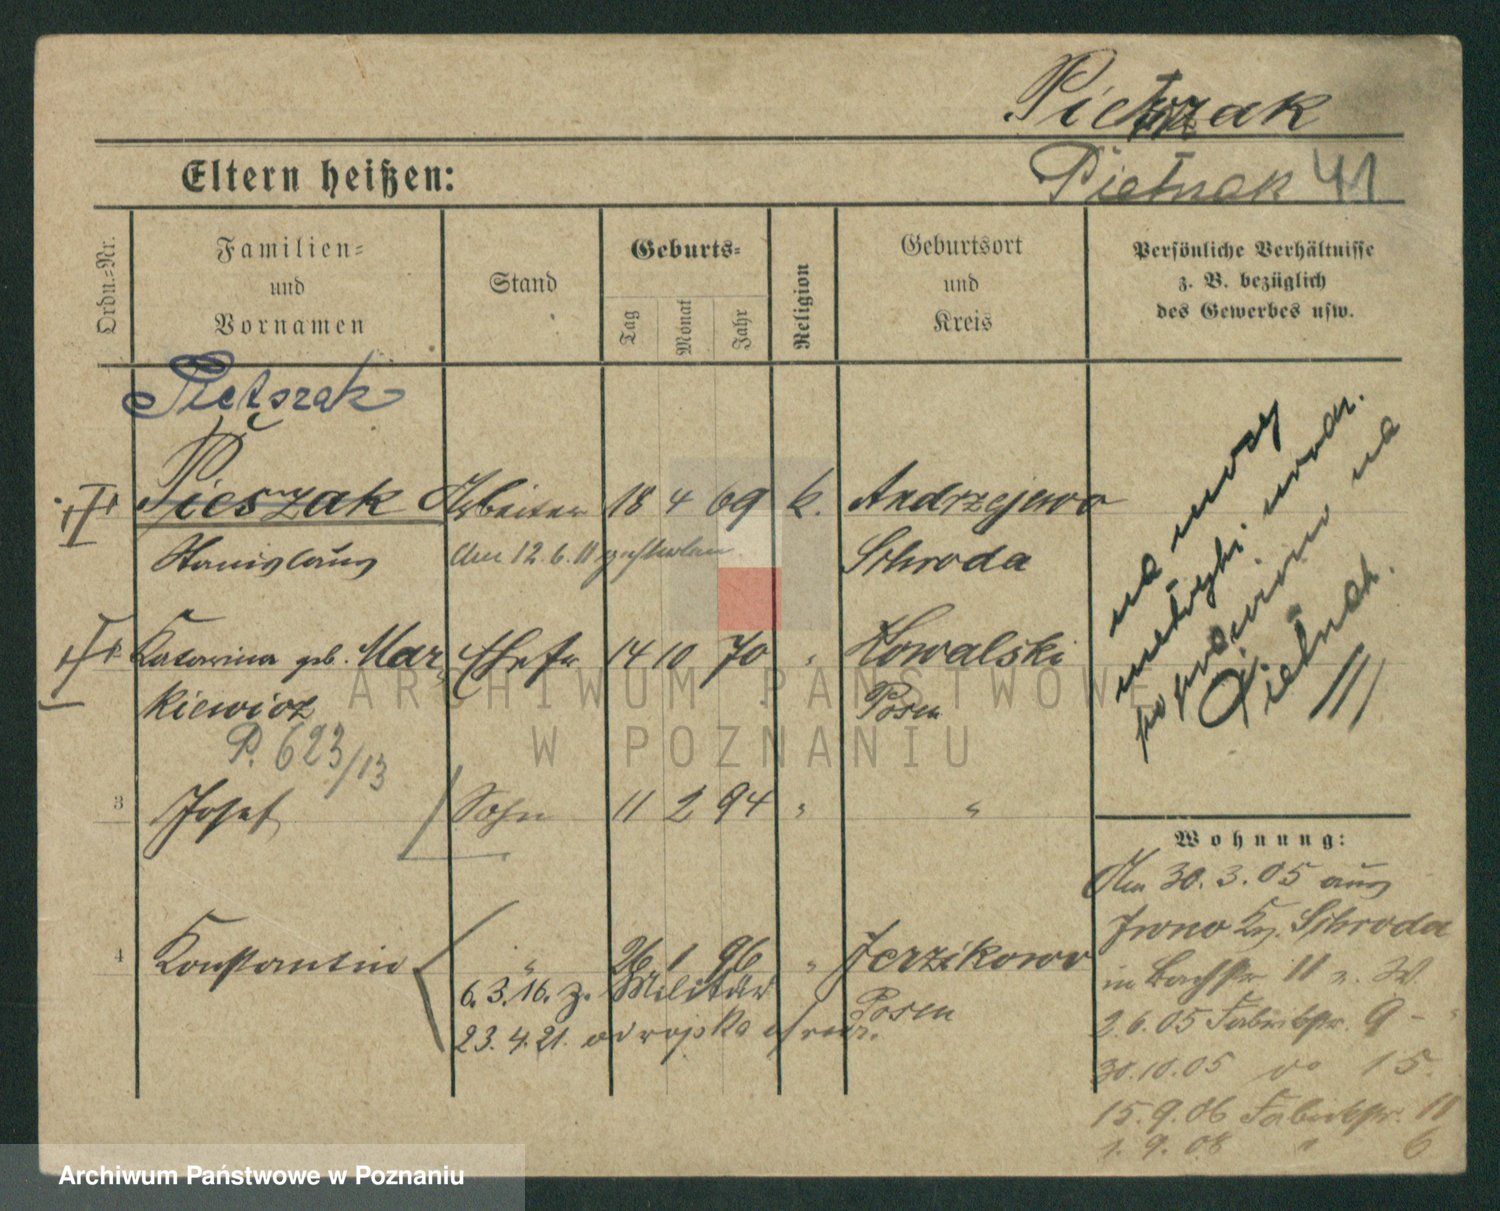 Pietrzak
Eltern heißen:
Pietrzak 41
Ordn.=Nr.
Familien=
und
Vornamen
Stand
Geburts=
Tag
Monat
Jahr
Religion
Geburtsort
und
Kreis
Persönliche Verhältnisse
z. B. bezüglich
des Gewerbes usw.
Pietszak
Pieszak Arbeiter 18 4 69 k. Andrzejewo
Stanislaus am 12.6.11 gestorben Schroda
Katarina geb. Mar- Ehefr 14 10 70 " Kowalski
kiewicz Posen
P. 623/13
3 Josef Sohn 11 2 94 " "
4 Konstantin " 26 1 96 " Jerzikowo
Posen
6.3.16. z. Militär
23.4.21. od wojska
na mocy
metryki urodz.
na
Pietrzak.
Wohnung:
Am 30.3.05 aus
Iwno Kr. Schroda
in Bachstr 11 b. W
2.6.05 Fabrikstr. 9
30.10.05 do 15.
15.9.06 Fabrikstr. 11
1.9.08 " 6
ARCHIWUM PAŃSTWOWE
W POZNANIU
Archiwum Państwowe w Poznaniu